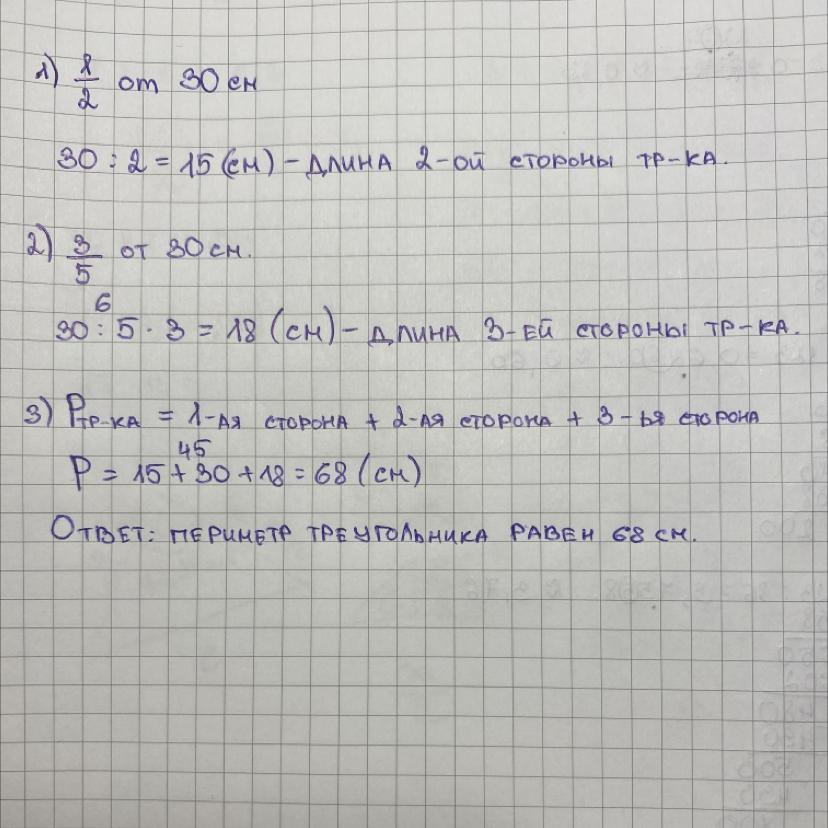 1) 1/2 от 30 см
30 : 2 = 15 (см) – ДЛИНА 2-ОЙ СТОРОНЫ ТР-КА.
2) 3/5 ОТ 30 см.
6
30 : 5 · 3 = 18 (см) – ДЛИНА 3-ЕЙ СТОРОНЫ ТР-КА.
3) Pтр-ка = 1-АЯ СТОРОНА + 2-АЯ СТОРОНА + 3-ЬЯ СТОРОНА
45
P = 15 + 30 + 18 = 68 (см)
ОТВЕТ: ПЕРИМЕТР ТРЕУГОЛЬНИКА РАВЕН 68 см.